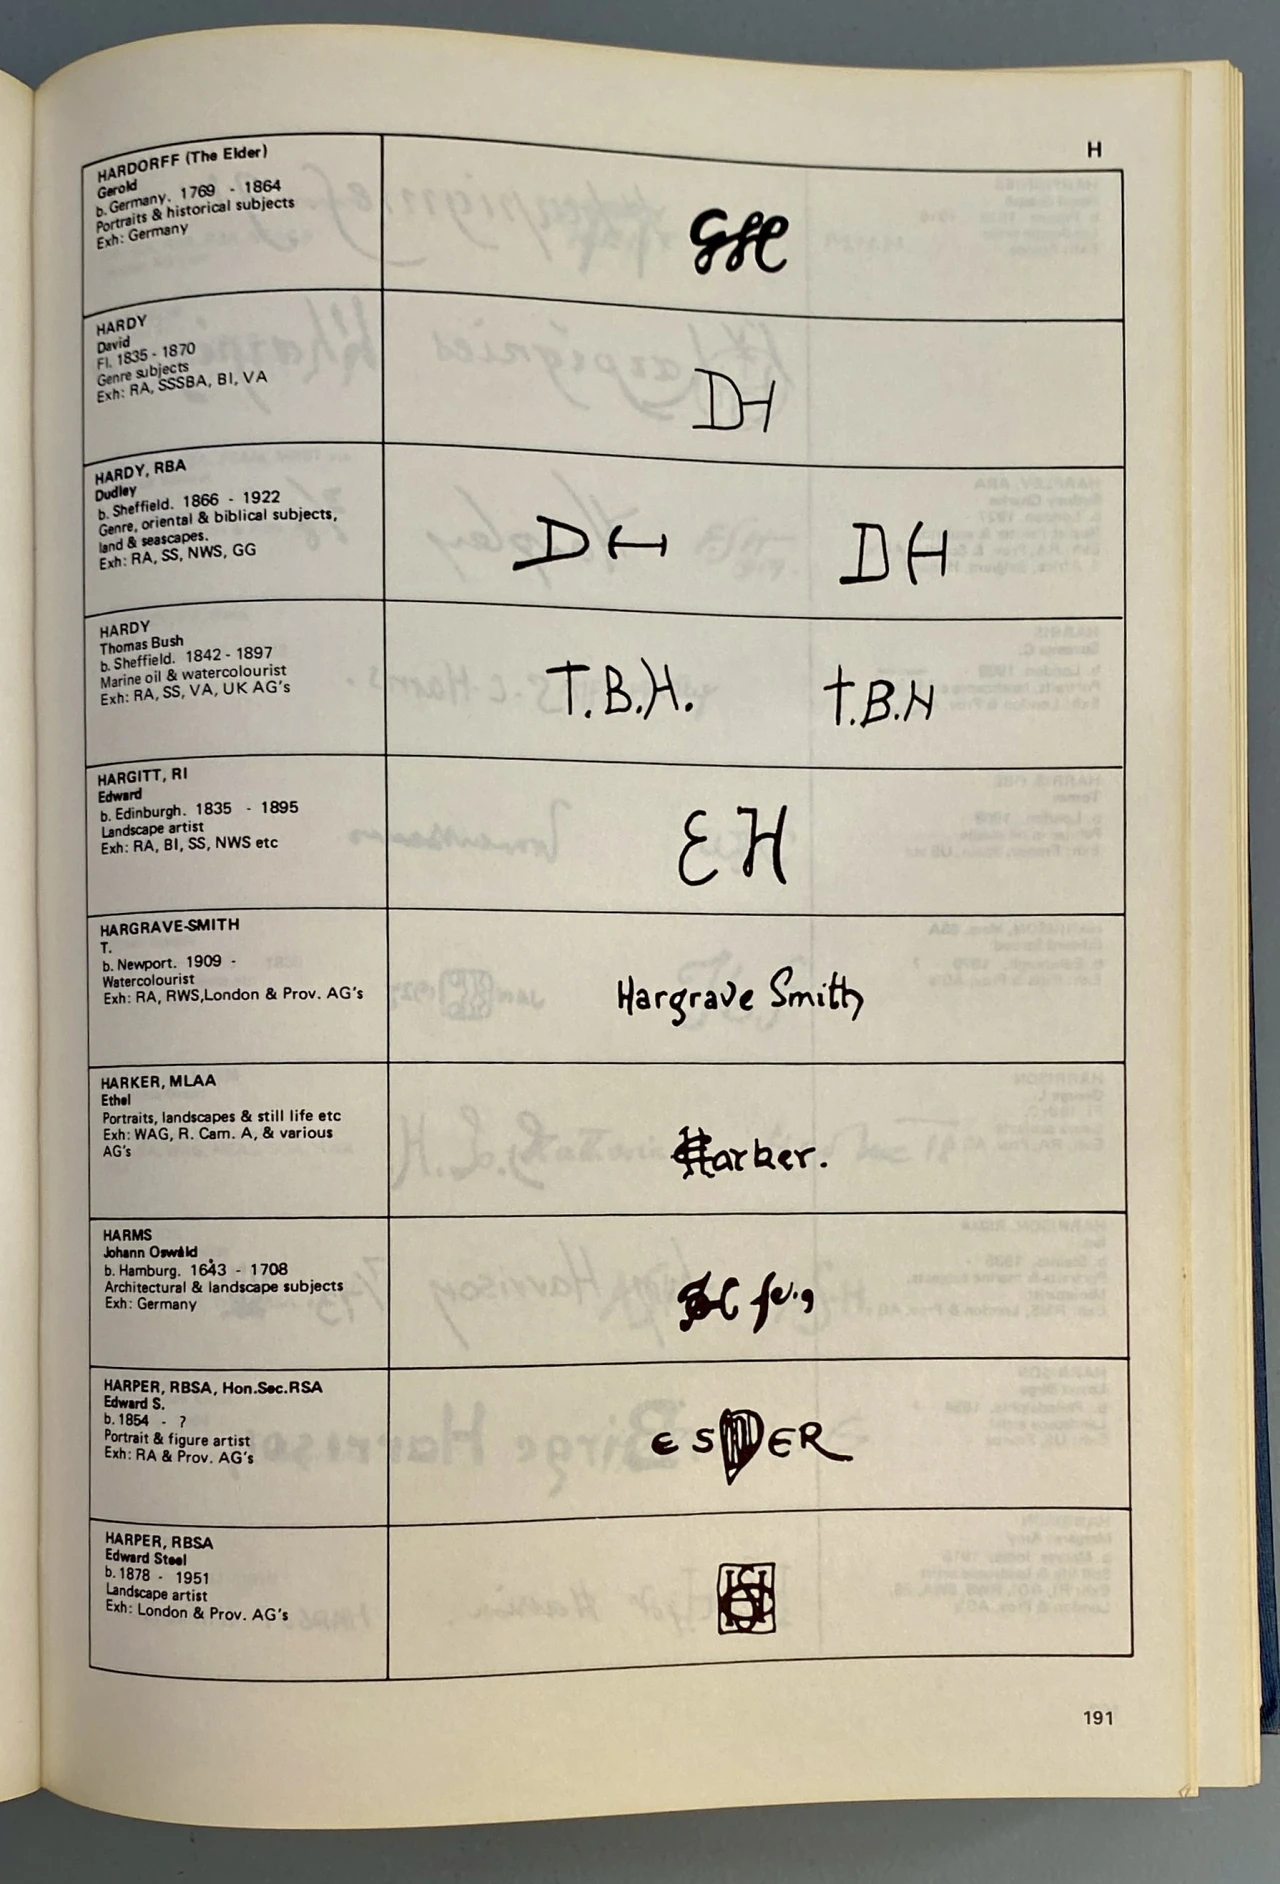 H
HARDORFF (The Elder)
Gerold
b. Germany. 1769 - 1864
Portraits & historical subjects
Exh: Germany
HARDY
David
Fl. 1835 - 1870
Genre subjects
Exh: RA, SSSBA, BI, VA
DH
HARDY, RBA
Dudley
b. Sheffield. 1866 - 1922
Genre, oriental & biblical subjects,
land & seascapes.
Exh: RA, SS, NWS, GG
DH DH
HARDY
Thomas Bush
b. Sheffield. 1842 - 1897
Marine oil & watercolourist
Exh: RA, SS, VA, UK AG's
T.B.H. T.B.H
HARGITT, RI
Edward
b. Edinburgh. 1835 - 1895
Landscape artist
Exh: RA, BI, SS, NWS etc
EH
HARGRAVE-SMITH
T.
b. Newport. 1909 -
Watercolourist
Exh: RA, RWS,London & Prov. AG's
Hargrave Smith
HARKER, MLAA
Ethel
Portraits, landscapes & still life etc
Exh: WAG, R. Cam. A, & various
AG's
Harker.
HARMS
Johann Oswald
b. Hamburg. 1643 - 1708
Architectural & landscape subjects
Exh: Germany
HARPER, RBSA, Hon.Sec.RSA
Edward S.
b. 1854 - ?
Portrait & figure artist
Exh: RA & Prov. AG's
HARPER, RBSA
Edward Steel
b. 1878 - 1951
Landscape artist
Exh: London & Prov. AG's
191